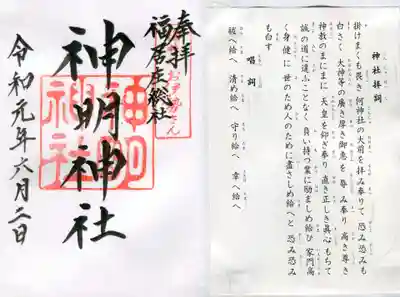 神社拝詞
掛けまくも畏き 何神社の大前を拝み奉りて 恐み恐みも
白さく 大神等の廣き厚き御恵を 辱み奉り 高き尊き
神教のまにまに 天皇を仰ぎ奉り 直き正しき眞心もちて
誠の道に違ふことなく 負ひ持つ業に励ましめ給ひ 家門高
く身健に 世のため人のために盡さしめ給へと 恐み恐み
も白す
唱詞
祓へ給へ 清め給へ 守り給へ 幸へ給へ
奉拝
福居庄総社
神明神社
神明
神社
令和元年六月二日